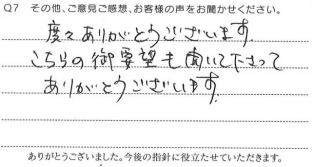 Q7 その他、ご意見ご感想、お客様の声をお聞かせください。
度々ありがとうございます。
こちらの御要望も聞いて下さって
ありがとうございます。
ありがとうございました。今後の指針に役立たせていただきます。